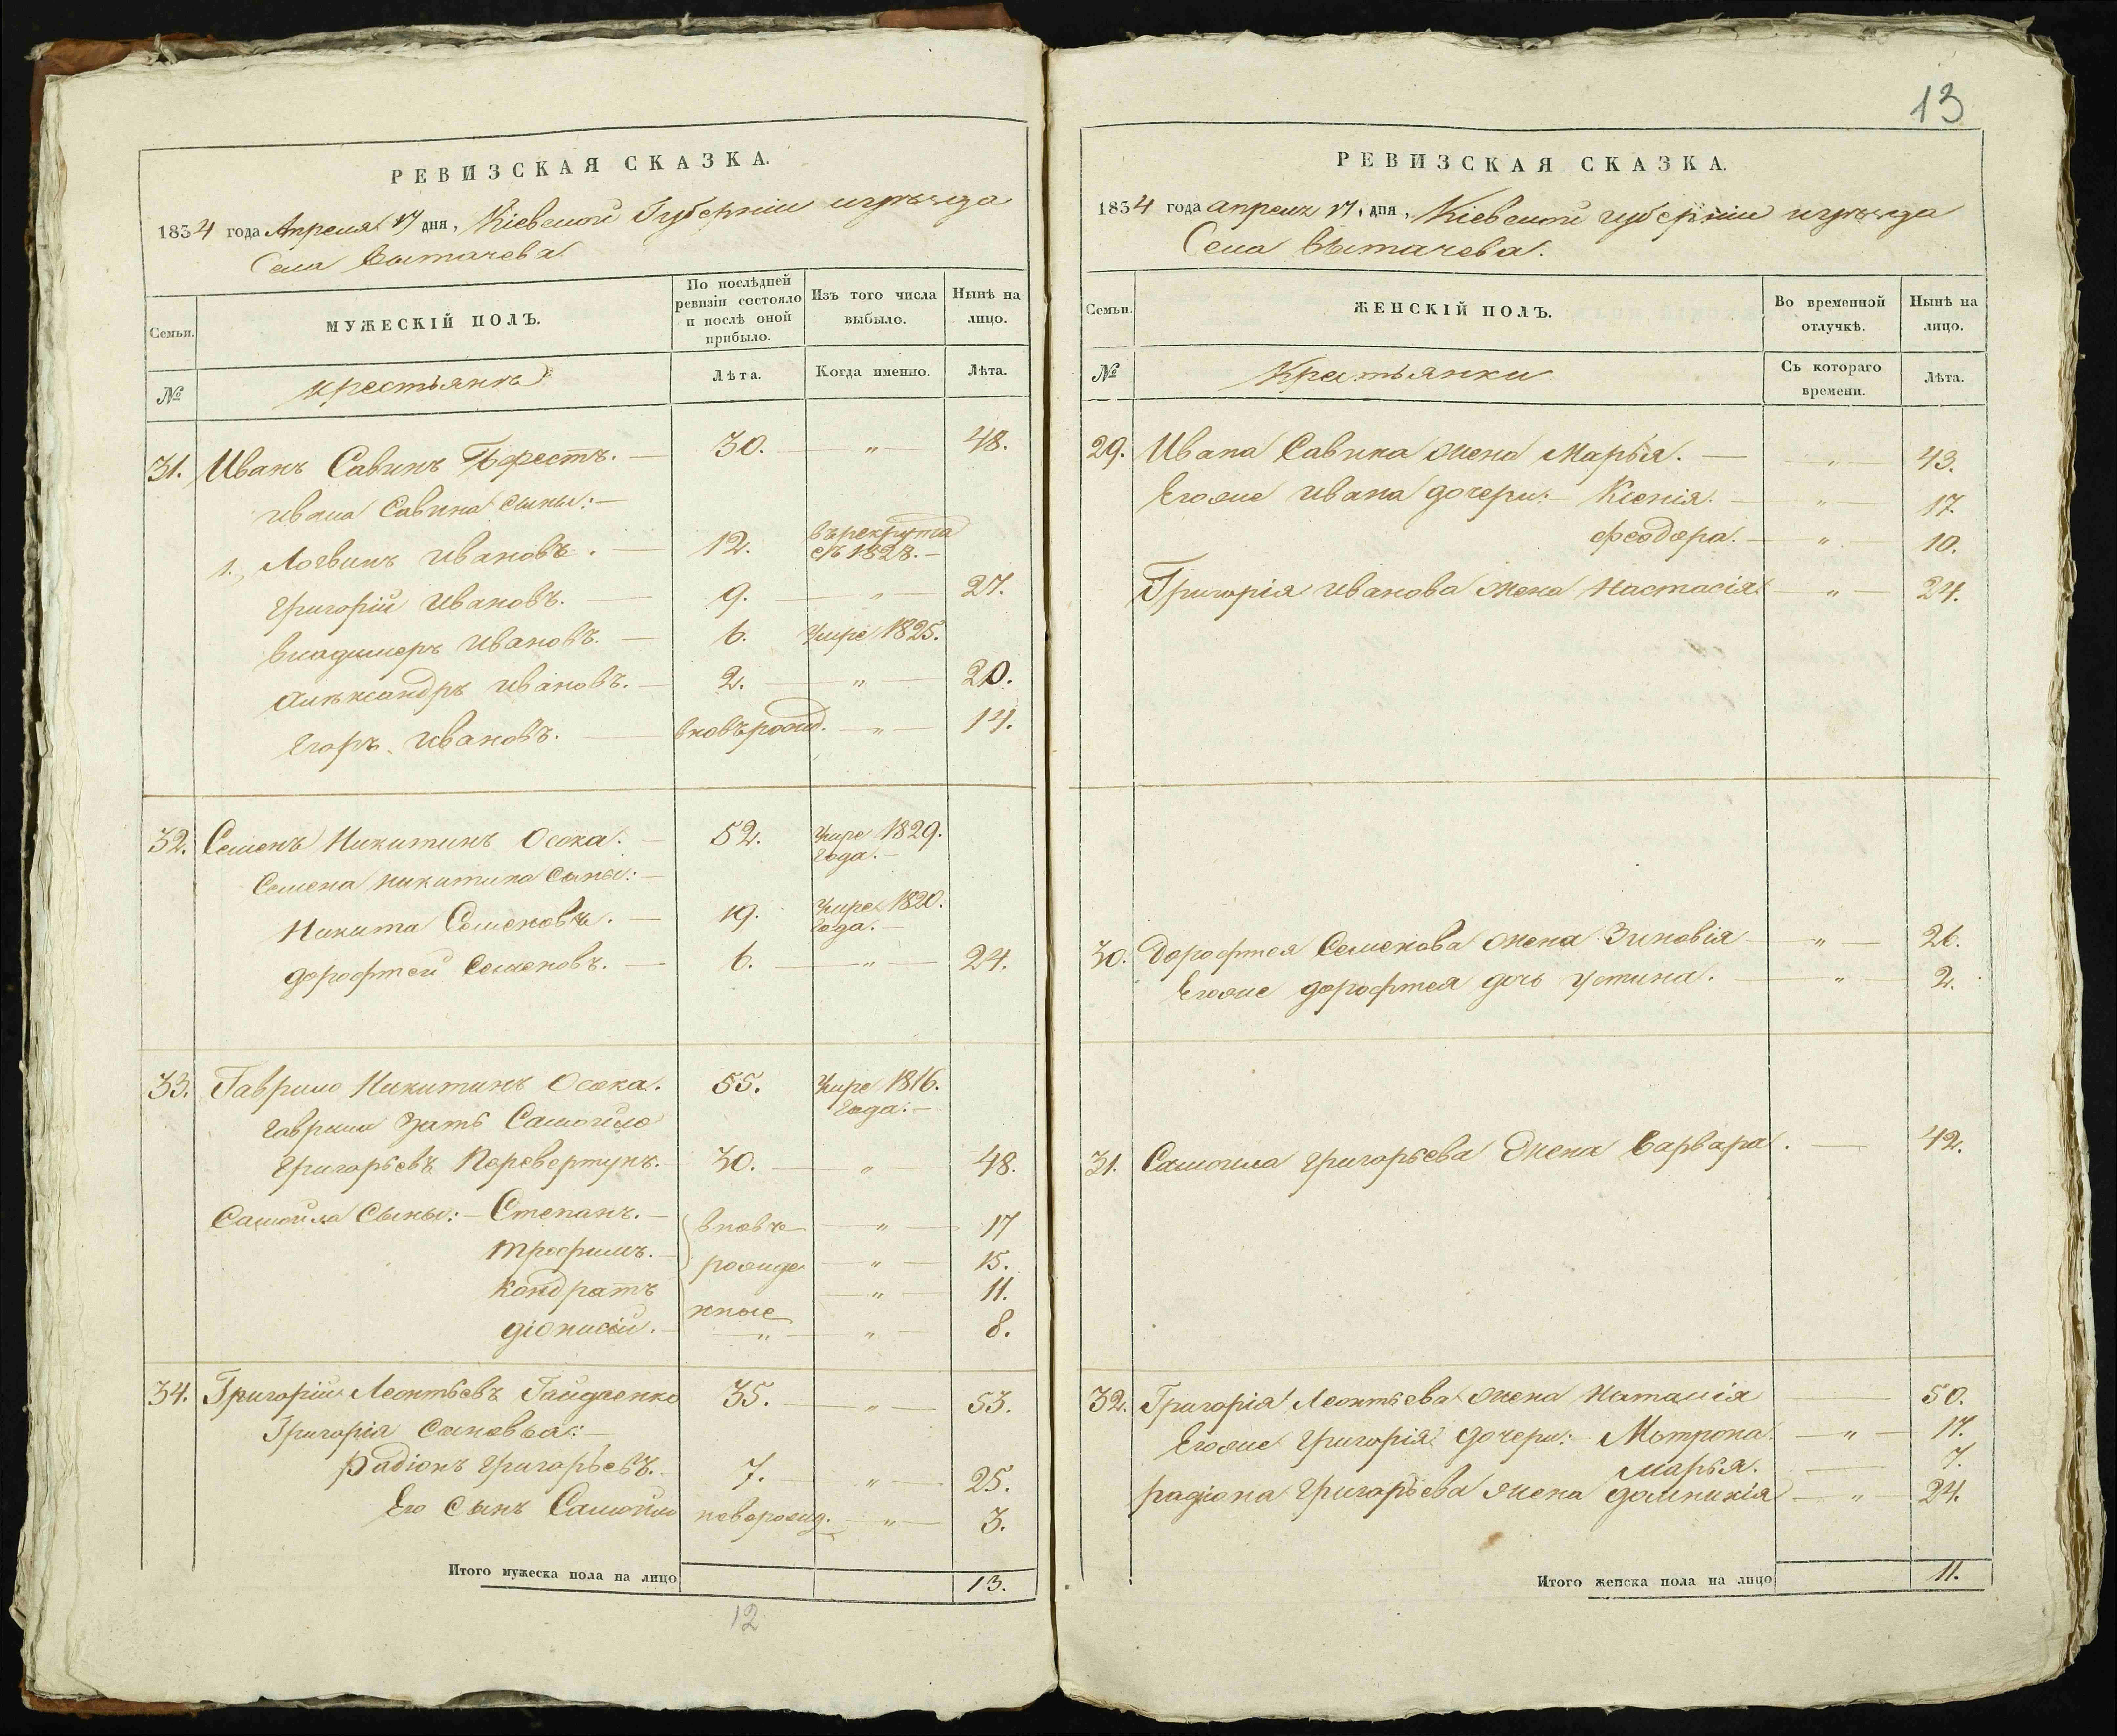 РЕВИЗСКАЯ СКАЗКА.
1834 года Апреля 17 дня, Кіевской Губерніи и уѣзда
Села Вытачева
Семьи. МУЖЕСКІЙ ПОЛЪ. По послѣдней ревизіи состояло и послѣ оной прибыло. Изъ того числа выбыло. Нынѣ на лицо.
№ крестьянъ Лѣта. Когда именно. Лѣта.
31. Иванъ Савинъ Берестъ. — 30. — „ — 48.
Ивана Савина сыны: —
1. Логвинъ Ивановъ. — 12. въ рекрута съ 1828. —
Григорій Ивановъ. — 9. — „ — 27.
Владимеръ Ивановъ. — 6. Умре 1825.
Александръ Ивановъ. — 2. — „ — 20.
Егоръ Ивановъ. — вновърожд. — „ — 14.
32. Семенъ Никитинъ Осока. — 52. Умре 1829. года. —
Семена Никитина сыны: —
Никита Семеновъ. — 19. Умре 1820. года. —
Дорофтей Семеновъ. — 6. — „ — 24.
33. Гаврило Никитинъ Осока. 55. Умре 1816. года. —
Гаврила зять Самойло
Григорьевъ Перевертунъ. 30. — „ — 48.
Самойла Сыны: — Степанъ. — вновъ — „ — 17
Трофимъ. — рожде — „ — 15.
Кондратъ — „ — 11.
нные
Діонисій. — „ — „ — 8.
34. Григорій Леонтьевъ Гайдаенко 35. — „ — 53.
Григорія сыновья: —
Радіонъ Григорьевъ. 7. — „ — 25.
Его Сынъ Самойло новорожд. — „ — 3.
Итого мужеска пола на лицо 13.
12
13
РЕВИЗСКАЯ СКАЗКА.
1834 года апреля 17, дня, Кіевской губерніи и уѣзда
Села Вытачева.
Семьи. ЖЕНСКІЙ ПОЛЪ. Во временной отлучкѣ. Нынѣ на лицо.
№ Крестьянки Съ котораго времени. Лѣта.
29. Ивана Савина жена Марья. — „ — 43.
Егоже Ивана дочери: Ксенія. — „ — 17.
Феодора. — „ — 10.
Григорія Иванова жена Настасія — „ — 24.
30. Дорофтея Семенова жена Зиновія — „ — 26.
Егоже Дорофтея дочь Устина. — „ — 2.
31. Самойла Григорьева Жена Варвара. — 42.
32. Григорія Леонтьева жена Наталія — 50.
Егоже Григорія дочери: Мотрона — „ — 17.
Марья. — 7.
Радіона Григорьева жена Домникія — „ — 24.
Итого женска пола на лицо 11.